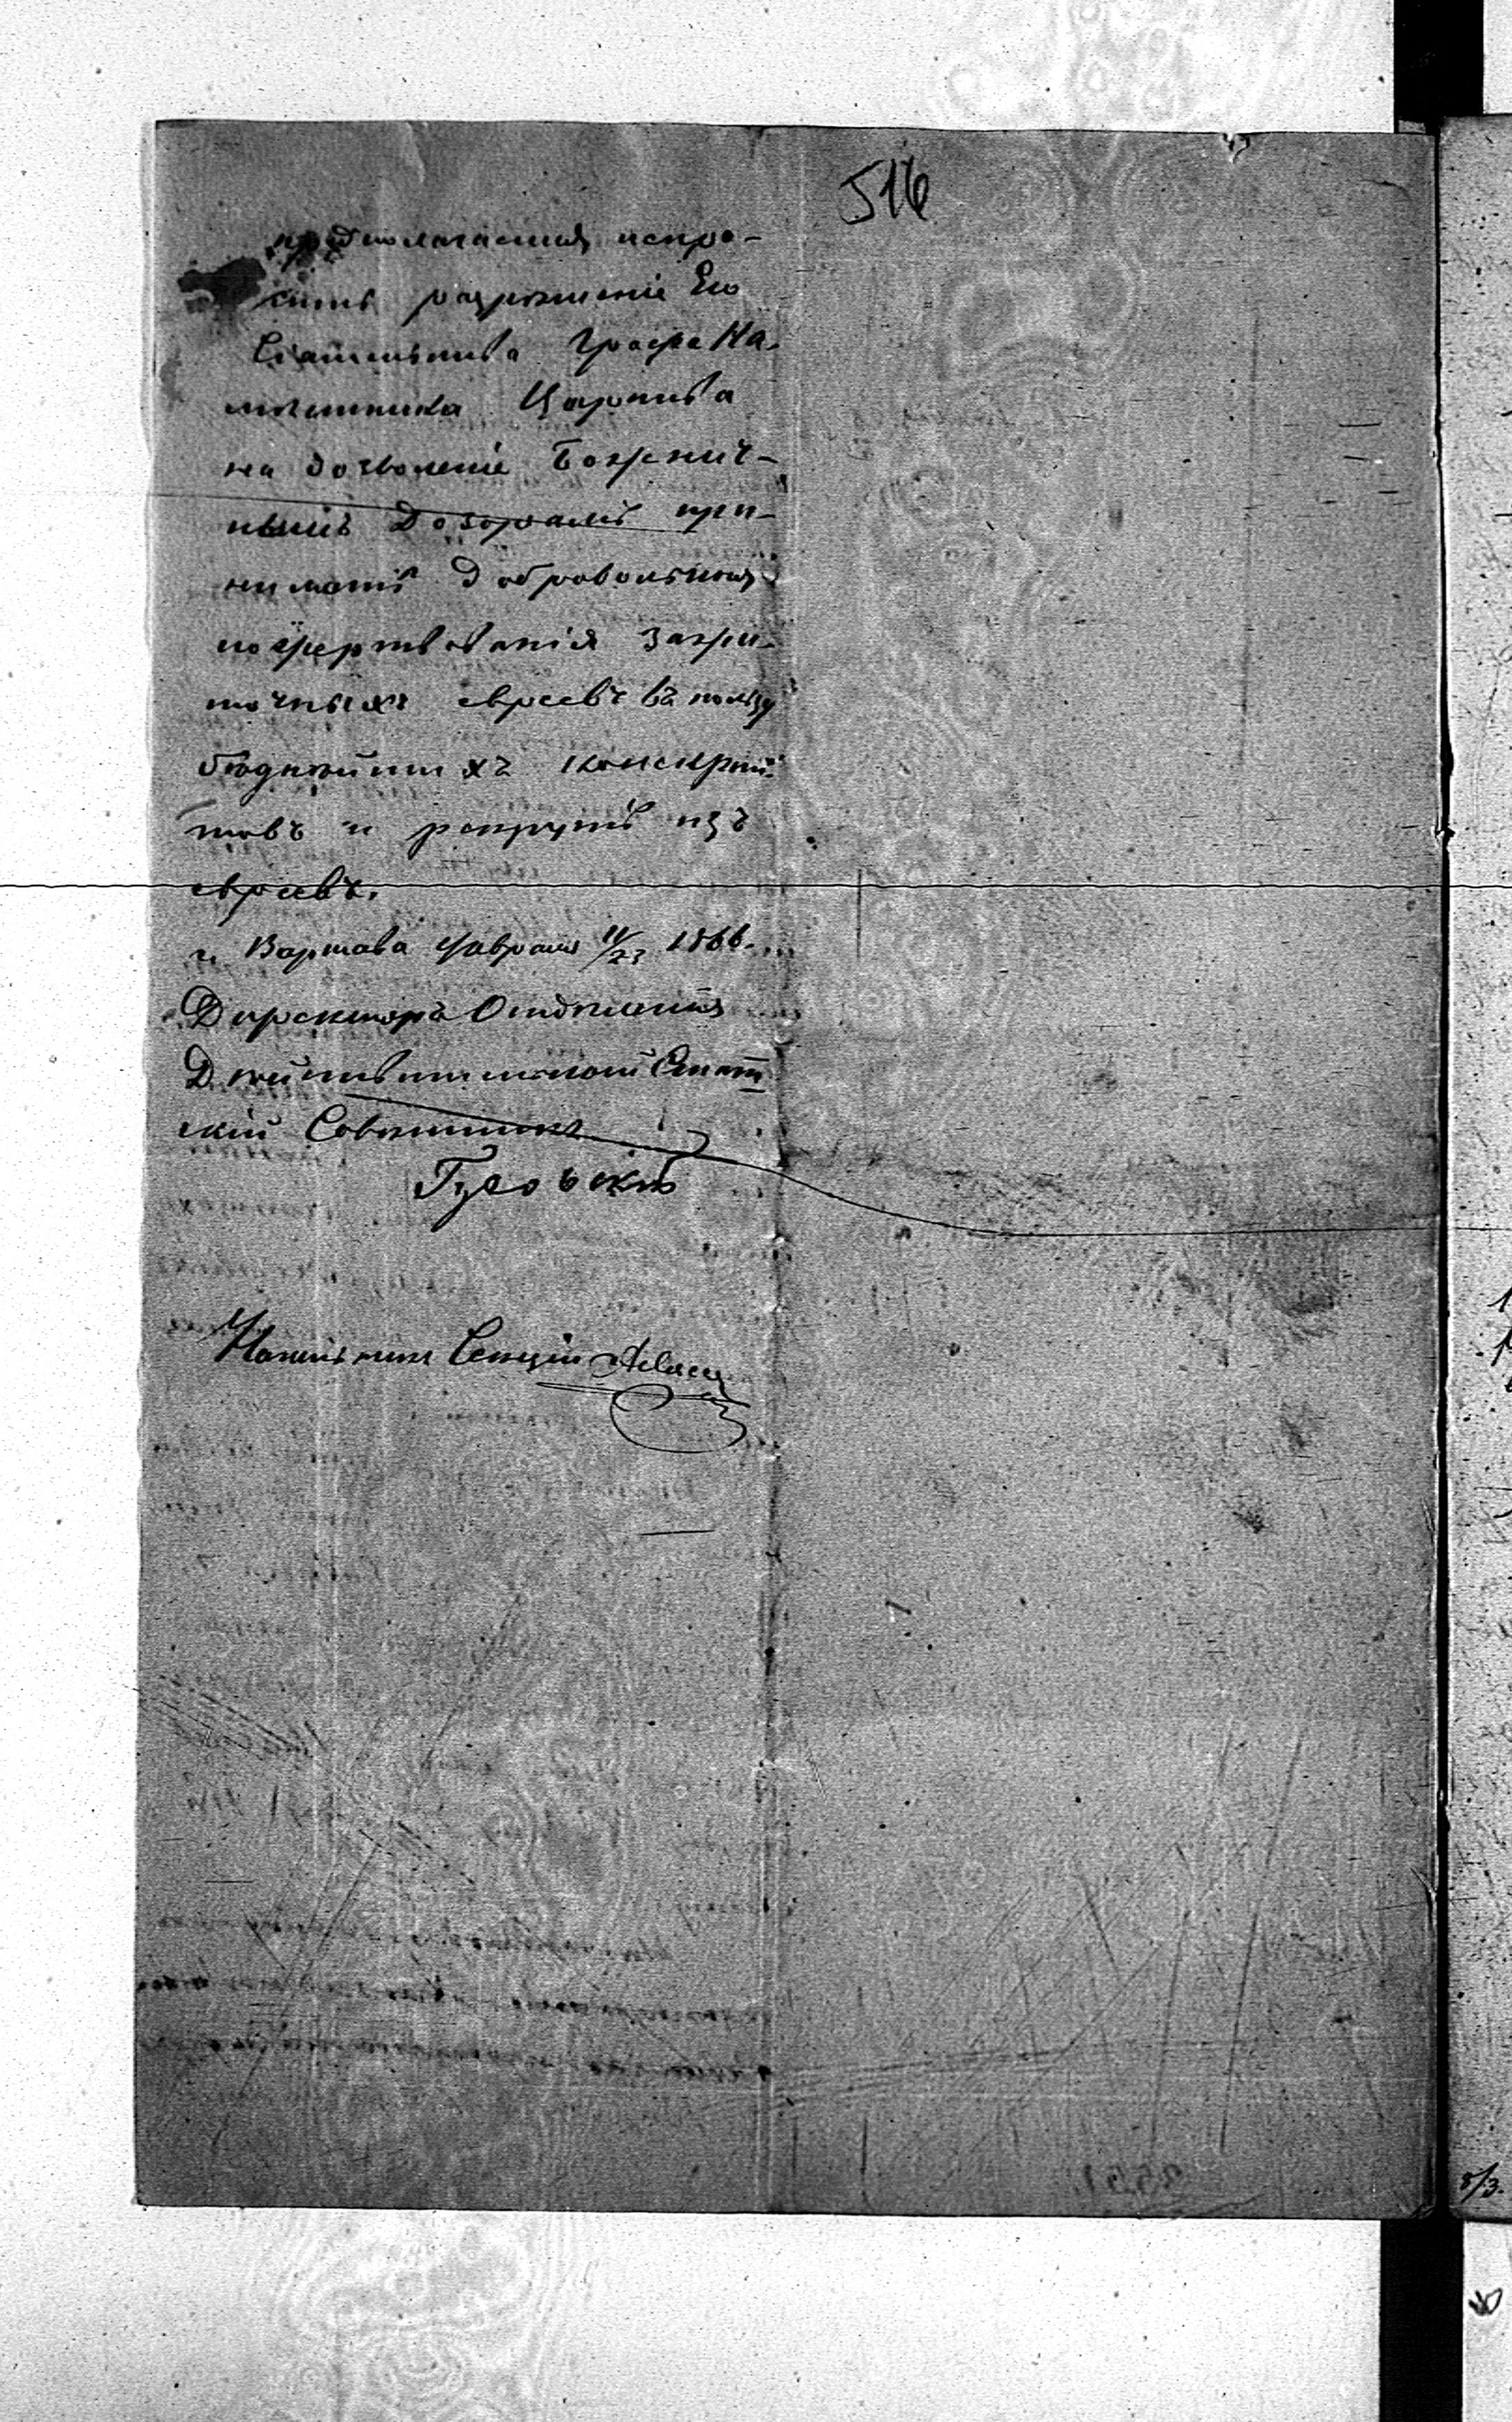 516
предполагается испро-
сить разрѣшеніе Его
Сіятельства Графа На-
мѣстника Царства
на дозволеніе Божнич-
нымъ Дозорамъ при-
нимать добровольныя
пожертвованія зажи-
точныхъ евреевъ въ пользу
бѣднѣйшихъ конскрип-
товъ и рекрутъ изъ
евреевъ.
г. Варшава Февраля 11/23 1866.
Директоръ Отдѣленія
Дѣйствительный Статт
скій Совѣтникъ
Начальникъ Секціи